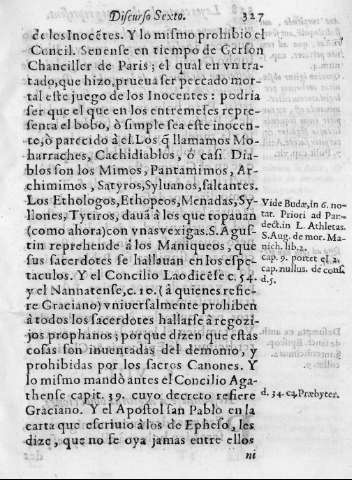 Discurso Sexto. 327
de los Inocẽtes. Y lo mismo prohibio el
Concil. Senense en tiempo de Gerson
Chanciller de Paris; el qual en vn tra-
tado, que hizo, prueua ser peccado mor-
tal este juego de los Inocentes: podria
ser que el que en los entremeses repre-
senta el bobo, ò simple sea este inocen-
te, ò parecido à el. Los q̃ llamamos Mo-
harraches, Cachidiablos, ó casi Dia-
blos son los Mimos, Pantamimos, Ar-
chimimos, Satyros, Syluanos, saltantes.
Los Ethologos, Ethopeos, Menadas, Sy-
llones, Tytiros, dauã à les que topauan
(como ahora) con vnas vexigas. S. Agus-
tin reprehende à los Maniqueos, que
sus sacerdotes se hallauan en los espe-
taculos. Y el Concilio Laodicẽse c. 54.
y el Nannatense, c. 10. (à quienes refie-
re Graciano) vniuersalmente prohiben
à todos los sacerdotes hallarse à regozi-
jos prophanos; porque dizen que estas
cosas son inuentadas del demonio, y
prohibidas por los sacros Canones. Y
lo mismo mandò antes el Concilio Aga-
thense capit. 39. cuyo decreto refiere
Graciano. Y el Apostol san Pablo en la
carta que escriuio à los de Epheso, les
dize, que no se oya jamas entre ellos
ni
Vide Budæ, in 6. no-
tar. Priori ad Pan-
dect. in L. Athletas.
S. Aug. de mor. Ma-
nich. lib. 2.
cap. 9. portet el 2.
cap. nullus. de cons.
d. 5.
d. 34. c. Præbyter.